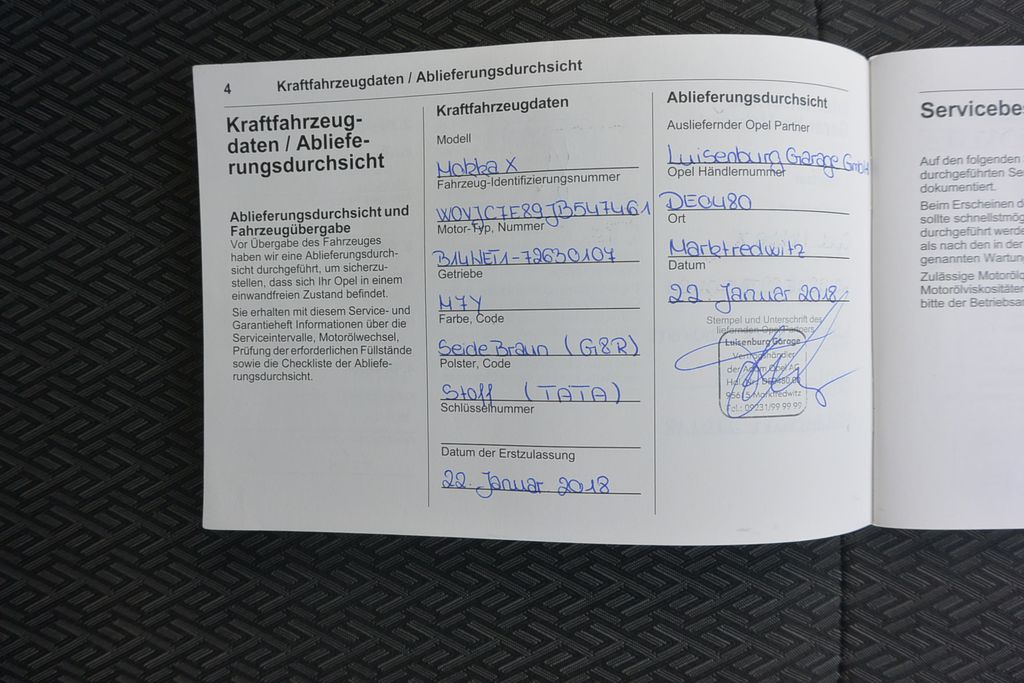 4 Kraftfahrzeugdaten / Ablieferungsdurchsicht
Kraftfahrzeug-
daten / Abliefe-
rungsdurchsicht
Ablieferungsdurchsicht und
Fahrzeugübergabe
Vor Übergabe des Fahrzeuges
haben wir eine Ablieferungsdurch-
sicht durchgeführt, um sicherzu-
stellen, dass sich Ihr Opel in einem
einwandfreien Zustand befindet.
Sie erhalten mit diesem Service- und
Garantieheft Informationen über die
Serviceintervalle, Motorölwechsel,
Prüfung der erforderlichen Füllstände
sowie die Checkliste der Abliefe-
rungsdurchsicht.
Kraftfahrzeugdaten
Modell
Mokka X
Fahrzeug-Identifizierungsnummer
W0VJC7E89JB547461
Motor-Typ, Nummer
B14NET1-72630107
Getriebe
M7Y
Farbe, Code
Seide Braun (G8R)
Polster, Code
Stoff (TATA)
Schlüsselnummer
Datum der Erstzulassung
22. Januar 2018
Ablieferungsdurchsicht
Ausliefernder Opel Partner
Luisenburg Garage GmbH
Opel Händlernummer
DE0480
Ort
Marktredwitz
Datum
22. Januar 2018
Stempel und Unterschrift des
liefernden Opel Partners
Luisenburg Garage
der Adam Opel AG
Marktredwitz
Tel.: 09231/99 99 99
Servicebe
Auf den folgenden
durchgeführten Se
dokumentiert.
Beim Erscheinen d
sollte schnellstmög
durchgeführt werde
als nach den in der
genannten Wartun
Zulässige Motorölq
Motorölviskositäten
bitte der Betriebsa